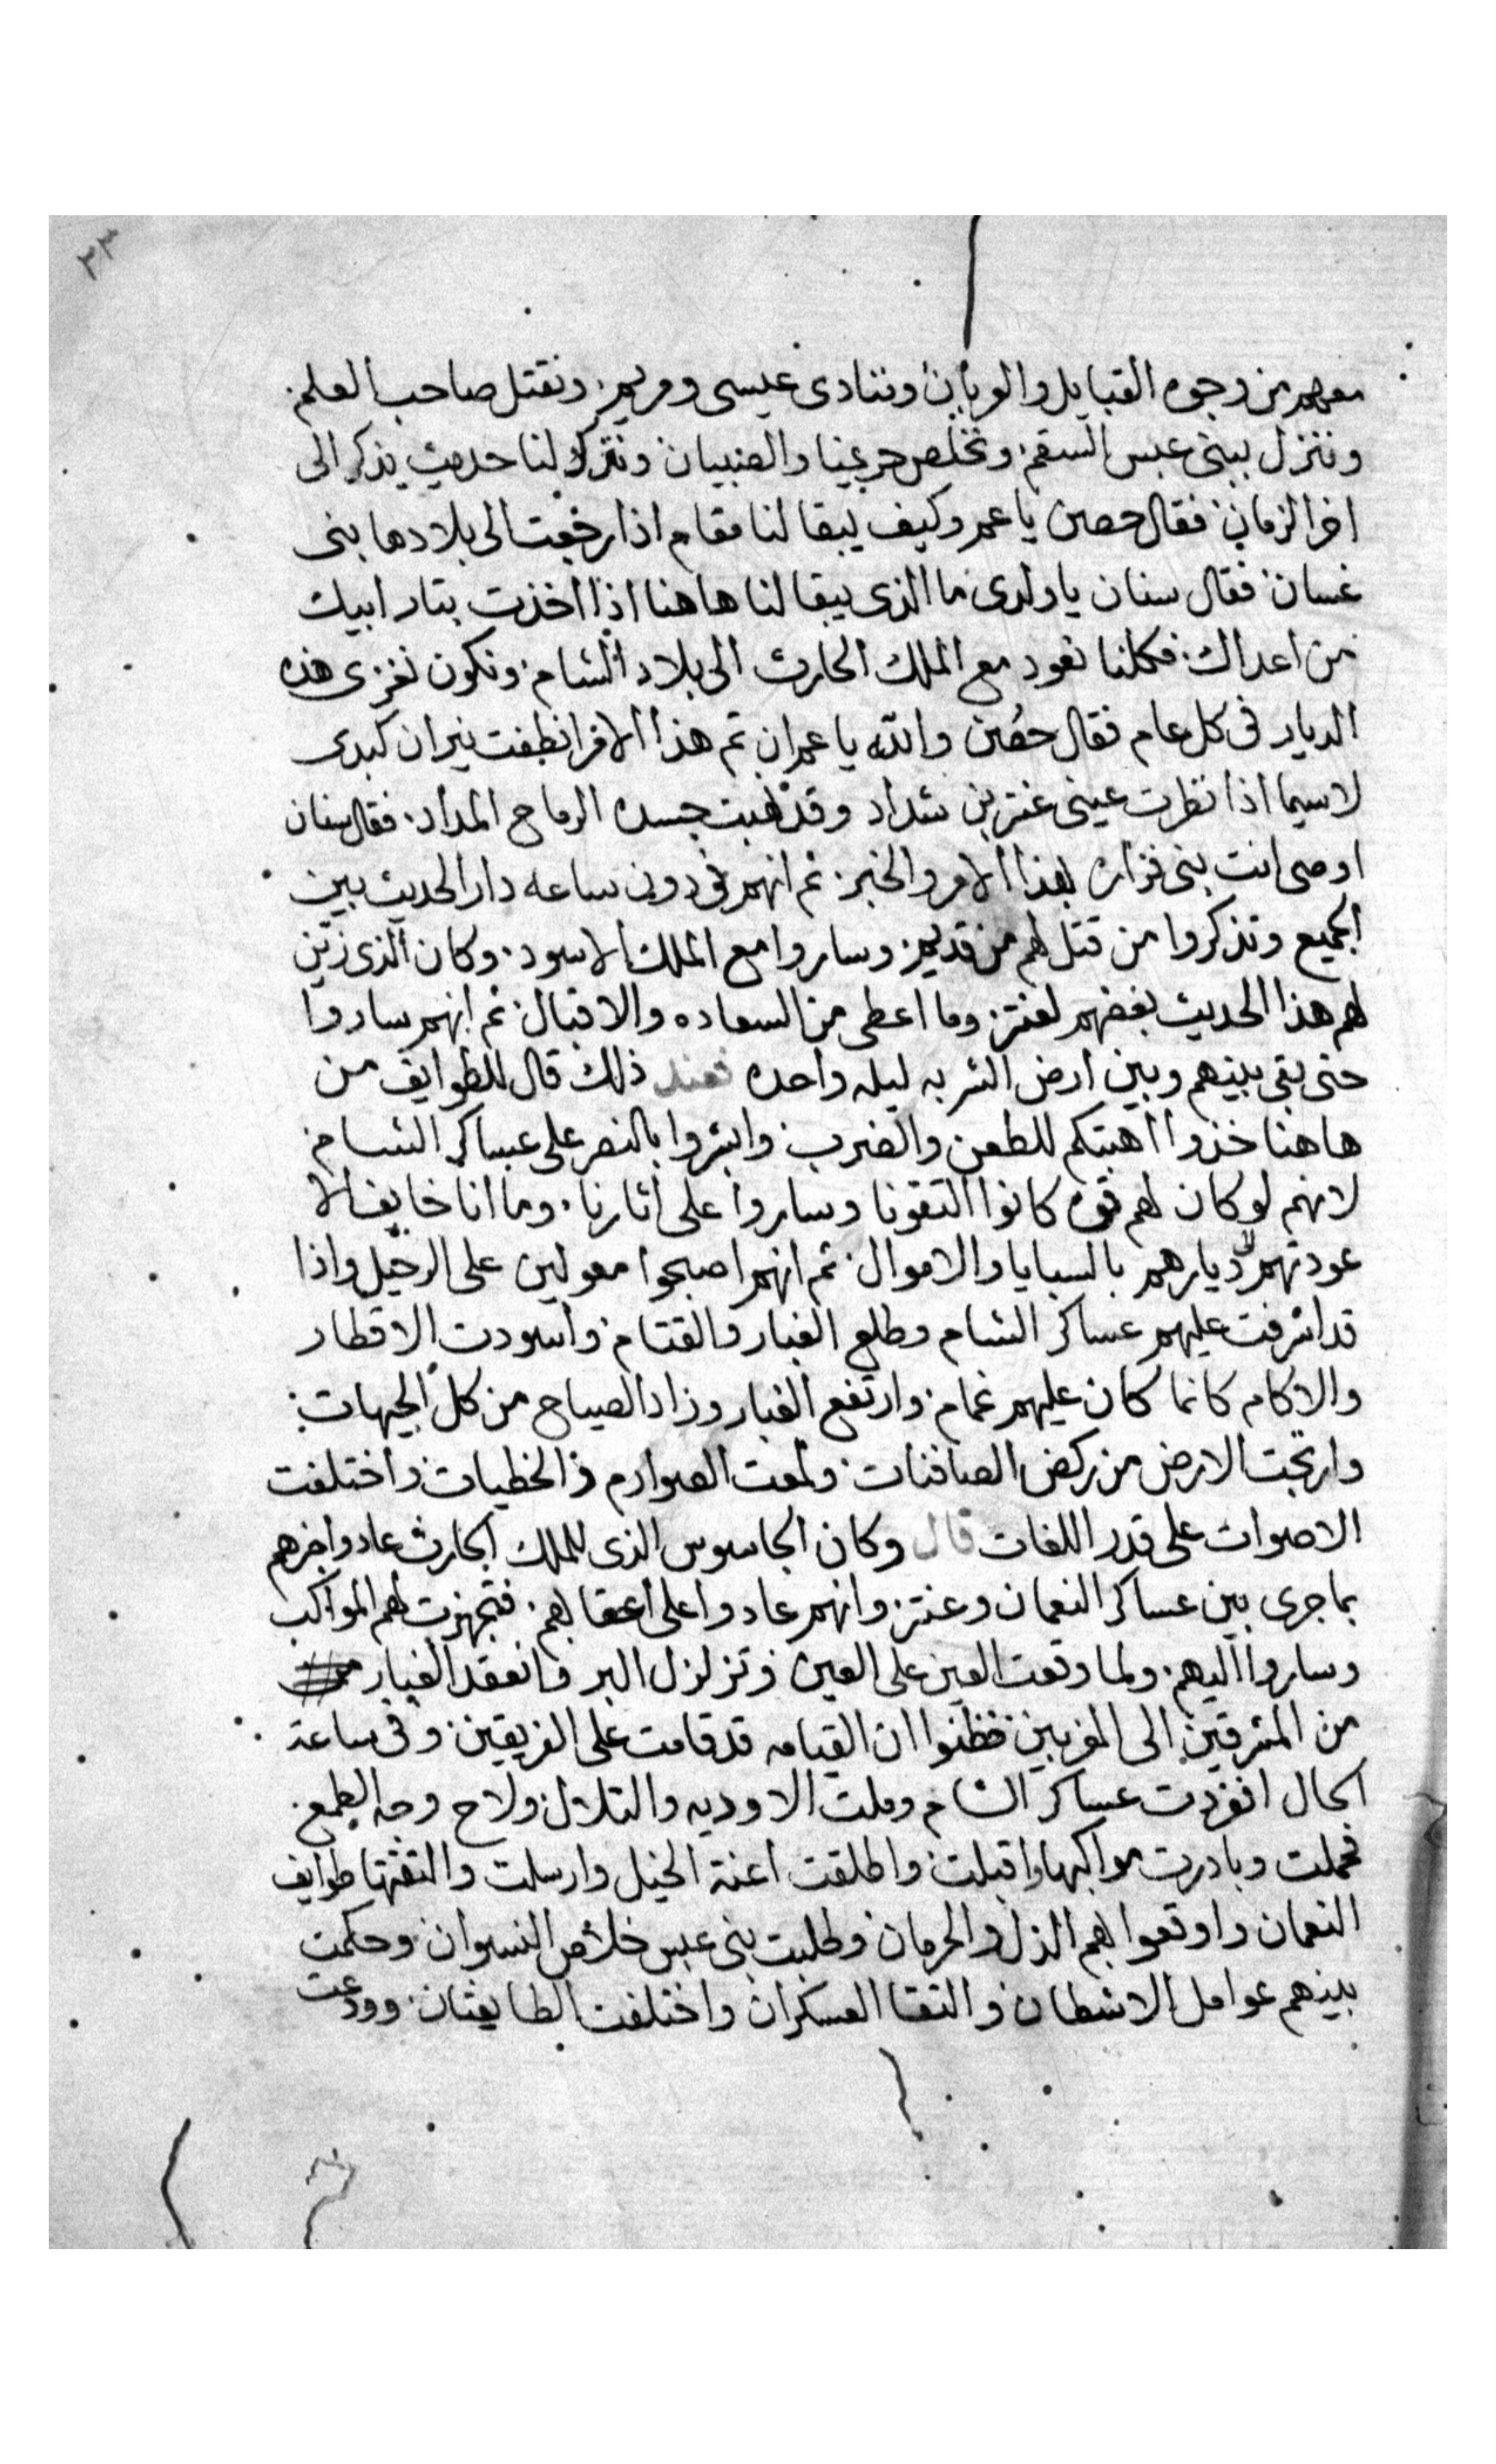 ٣٣
معهم من وجوه القبايل والعربان وننادى عيسى ومريم. ونقتل صاحب العلم.
وننزل ببنى عبس السقم. ونخلص حريمنا والصبيان ونترك لنا حديث يذكر الى
اخر الزمان. فقال حصن يا عم وكيف يبقا لنا مقام اذا رجعت الى بلادها بنى
غسان. فقال سنان يا ولدى ما الذى يبقا لنا هاهنا اذا اخذت بتار ابيك
من اعداك. فكلنا نعود مع الملك الحارث الى بلاد الشام. ونكون نغزى هذه
الديار فى كل عام فقال حصن والله يا عم ان تم هذا الامر انطفت نيران كبدى
لاسيما اذا نظرت عينى عنتر بن شداد وقد نهبت جسده الرماح المداد. فقال سنان
اوصى انت بنى فزاره بهذا الامر والخبر. ثم انهم فى دون ساعه دار الحديث بين
الجميع وتذكروا من قتل لهم من قديم. وساروا مع الملك الاسود. وكان الذى زين
لهم هذا الحديث بغضهم لعنتر. وما اعطى من السعاده والاقبال. ثم انهم ساروا
حتى بقى بينهم وبين ارض الشربه ليله واحده فعند ذلك قال للطوايف من
هاهنا خذوا اهبتكم للطعن والضرب. وابشروا بالنصر على عساكر الشام.
لانهم لو كان لهم قوه كانوا التقونا وساروا على اثارنا. وما انا خايف الا
عودتهم لديارهم بالسبايا والاموال. ثم انهم اصبحوا معولين على الرحيل واذا
قد اشرفت عليهم عساكر الشام وطلع الغبار والقتام. واسودت الاقطار
والاكام كانما كان عليهم غمام. وارتفع الغبار وزاد الصياح من كل الجيهات.
وارتجت الارض من ركض الصافنات. ولمعت الصوارم والخطيات. واختلفت
الاصوات على قدر اللغات قال وكان الجاسوس الذى للملك الحارث عاد واخبرهم
بما جرى بين عساكر النعمان وعنتر. وانهم عادوا على اعقابهم. فتجهزت لهم المواكب
وساروا اليهم. ولما وقعت العين على العين وتزلزل البر وانعقد الغبار
من المشرقين الى المغربين فظنوا ان القيامه قد قامت على الفريقين. وفى ساعة
الحال انفردت عساكر الشام وملت الاوديه والتلال. ولاح وجه الطمع.
فحملت وبادرت مواكبها واقبلت. واطلقت اعنة الخيل وارسلت والتقتها طوايف
النعمان واوقعوا بهم الذل والحرمان وطلبت بنى عبس خلاص النسوان. وحكمت
بينهم عوامل الاشطان. والتقا العسكران واختلفت الطايفتان. وودعت